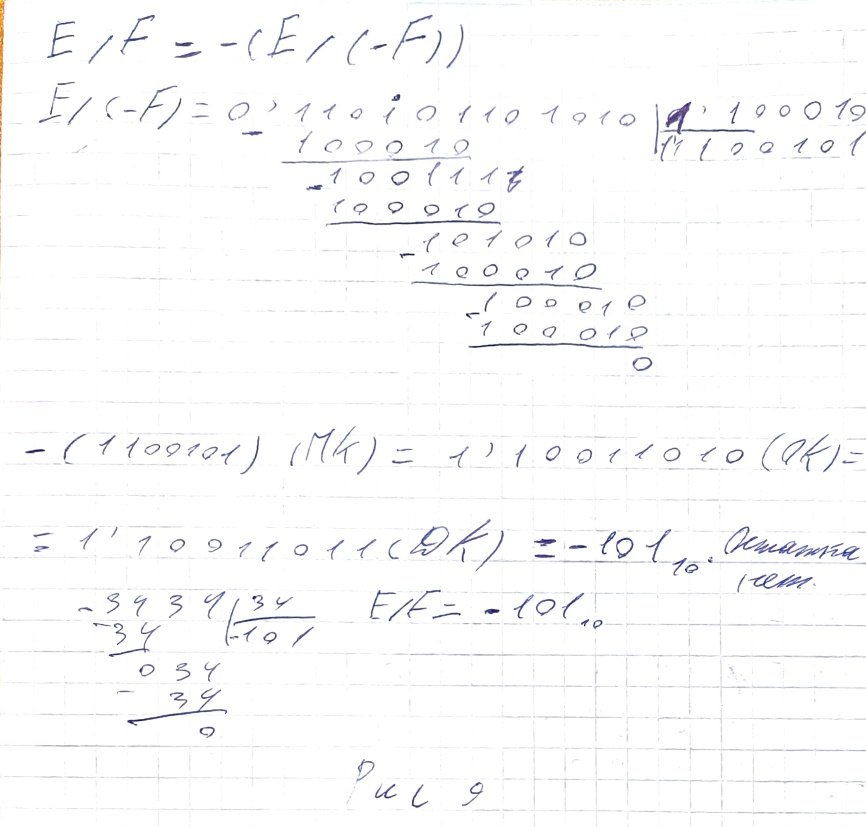 E/F = -(E/(-F))
E/(-F) = 0'110101101010 | 1'100010
- 100010 | 1100101
- 1001111
100010
- 101010
100010
- 100010
100010
0
-(1100101) (ПК) = 1'10011010 (ОК) =
= 1'10011011 (ДК) = -101₁₀. Остатка
нет.
- 3434 | 34 E/F = -101₁₀
- 34 | -101
034
- 34
0
Рис 9